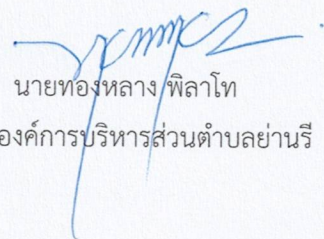 นายทองหลาง พิลาโท
องค์การบริหารส่วนตำบลย่านรี